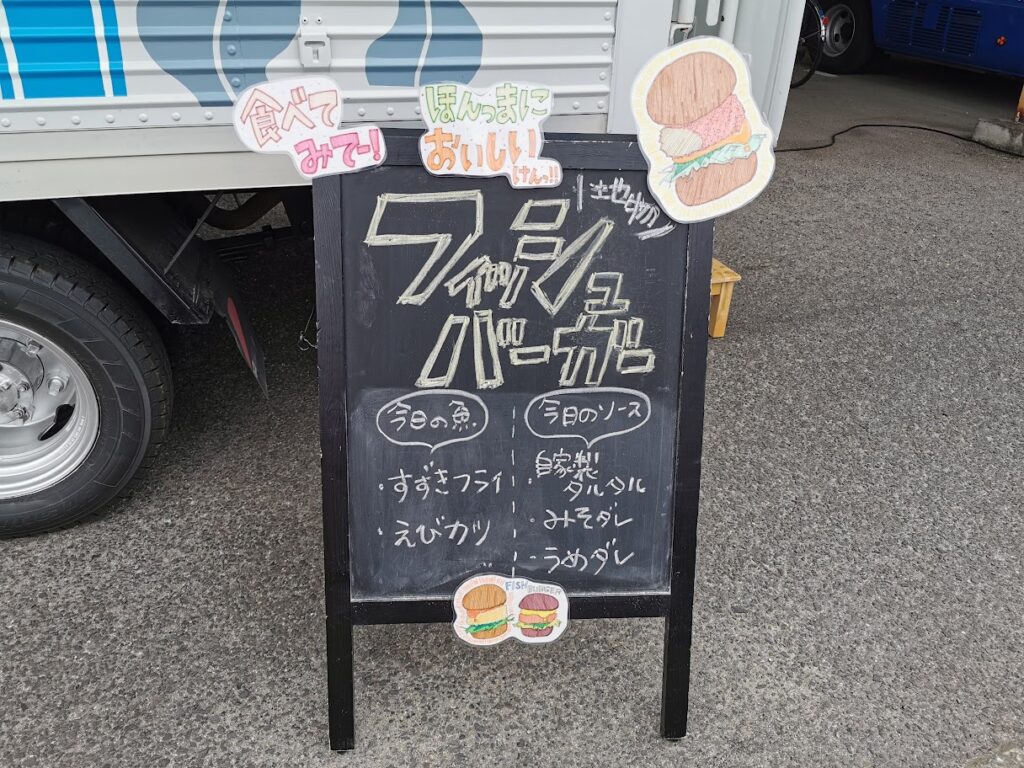 食べて
みてー!
ほんっまに
おいしい
けんっ!!
フィッシュ
バーガー
今日の魚
・すずきフライ
・えびカツ
今日のソース
・自家製
タルタル
・みそダレ
・うめダレ
FISH
BURGER